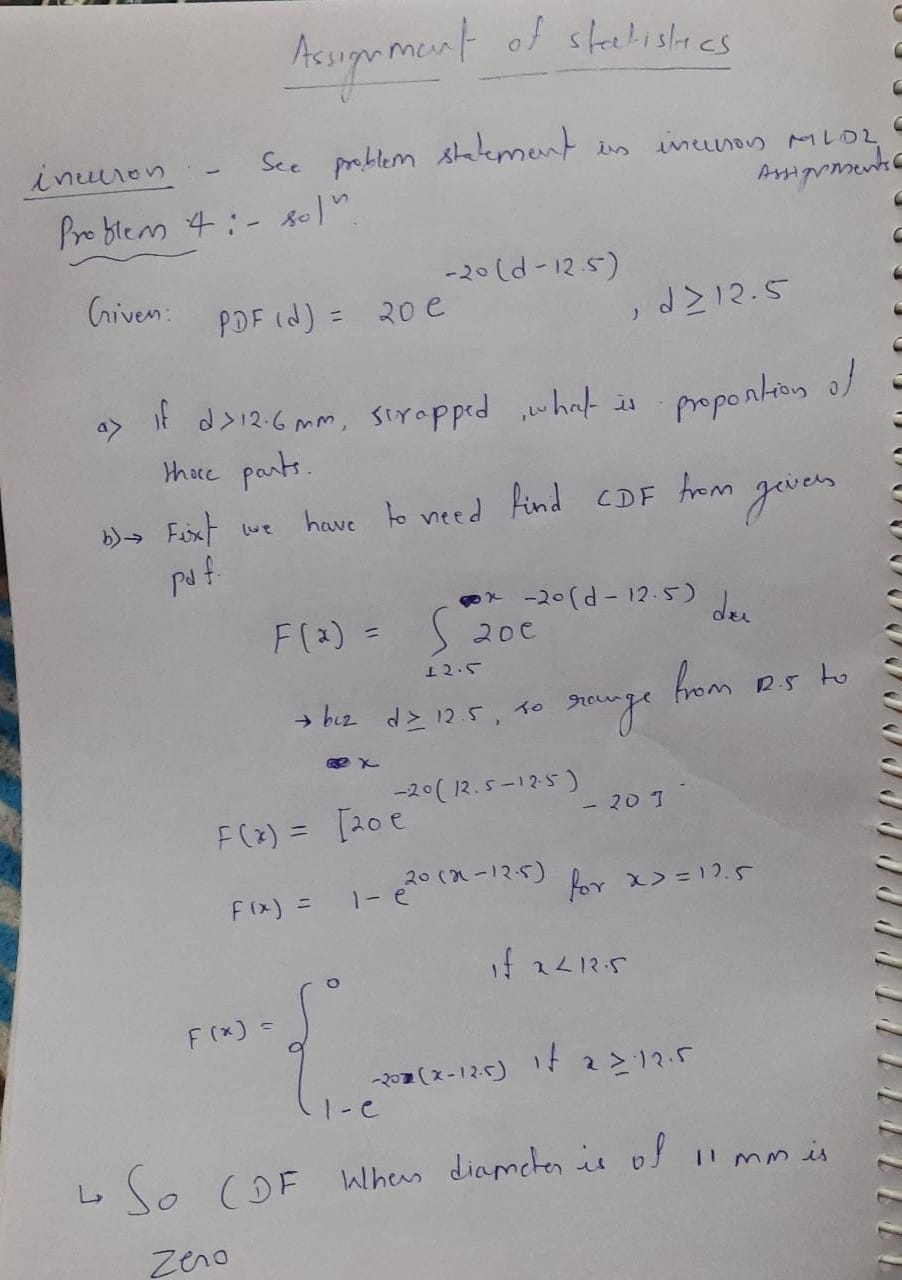 Assignment of statistics
ineuron - See problem statement in ineuron ML02
Assignments
Problem 4 :- solⁿ
Given: PDF(d) = 20e^{-20(d-12.5)}, d ≥ 12.5
a> If d>12.6 mm, scrapped, what is proportion of
those parts.
b)→ First we have to need find CDF from given
pdf.
F(x) = ∫_{12.5}^{x} 20e^{-20(d-12.5)}
→ bcz d ≥ 12.5, so range from 12.5 to
x
F(x) = [20e^{-20(12.5-12.5)} - 20]
F(x) = 1-e^{20(x-12.5)} for x>=12.5
F(x) = { 0 if x<12.5
1-e^{-20(x-12.5)} if x ≥ 12.5
↳ So CDF When diameter is of 11 mm is
Zero